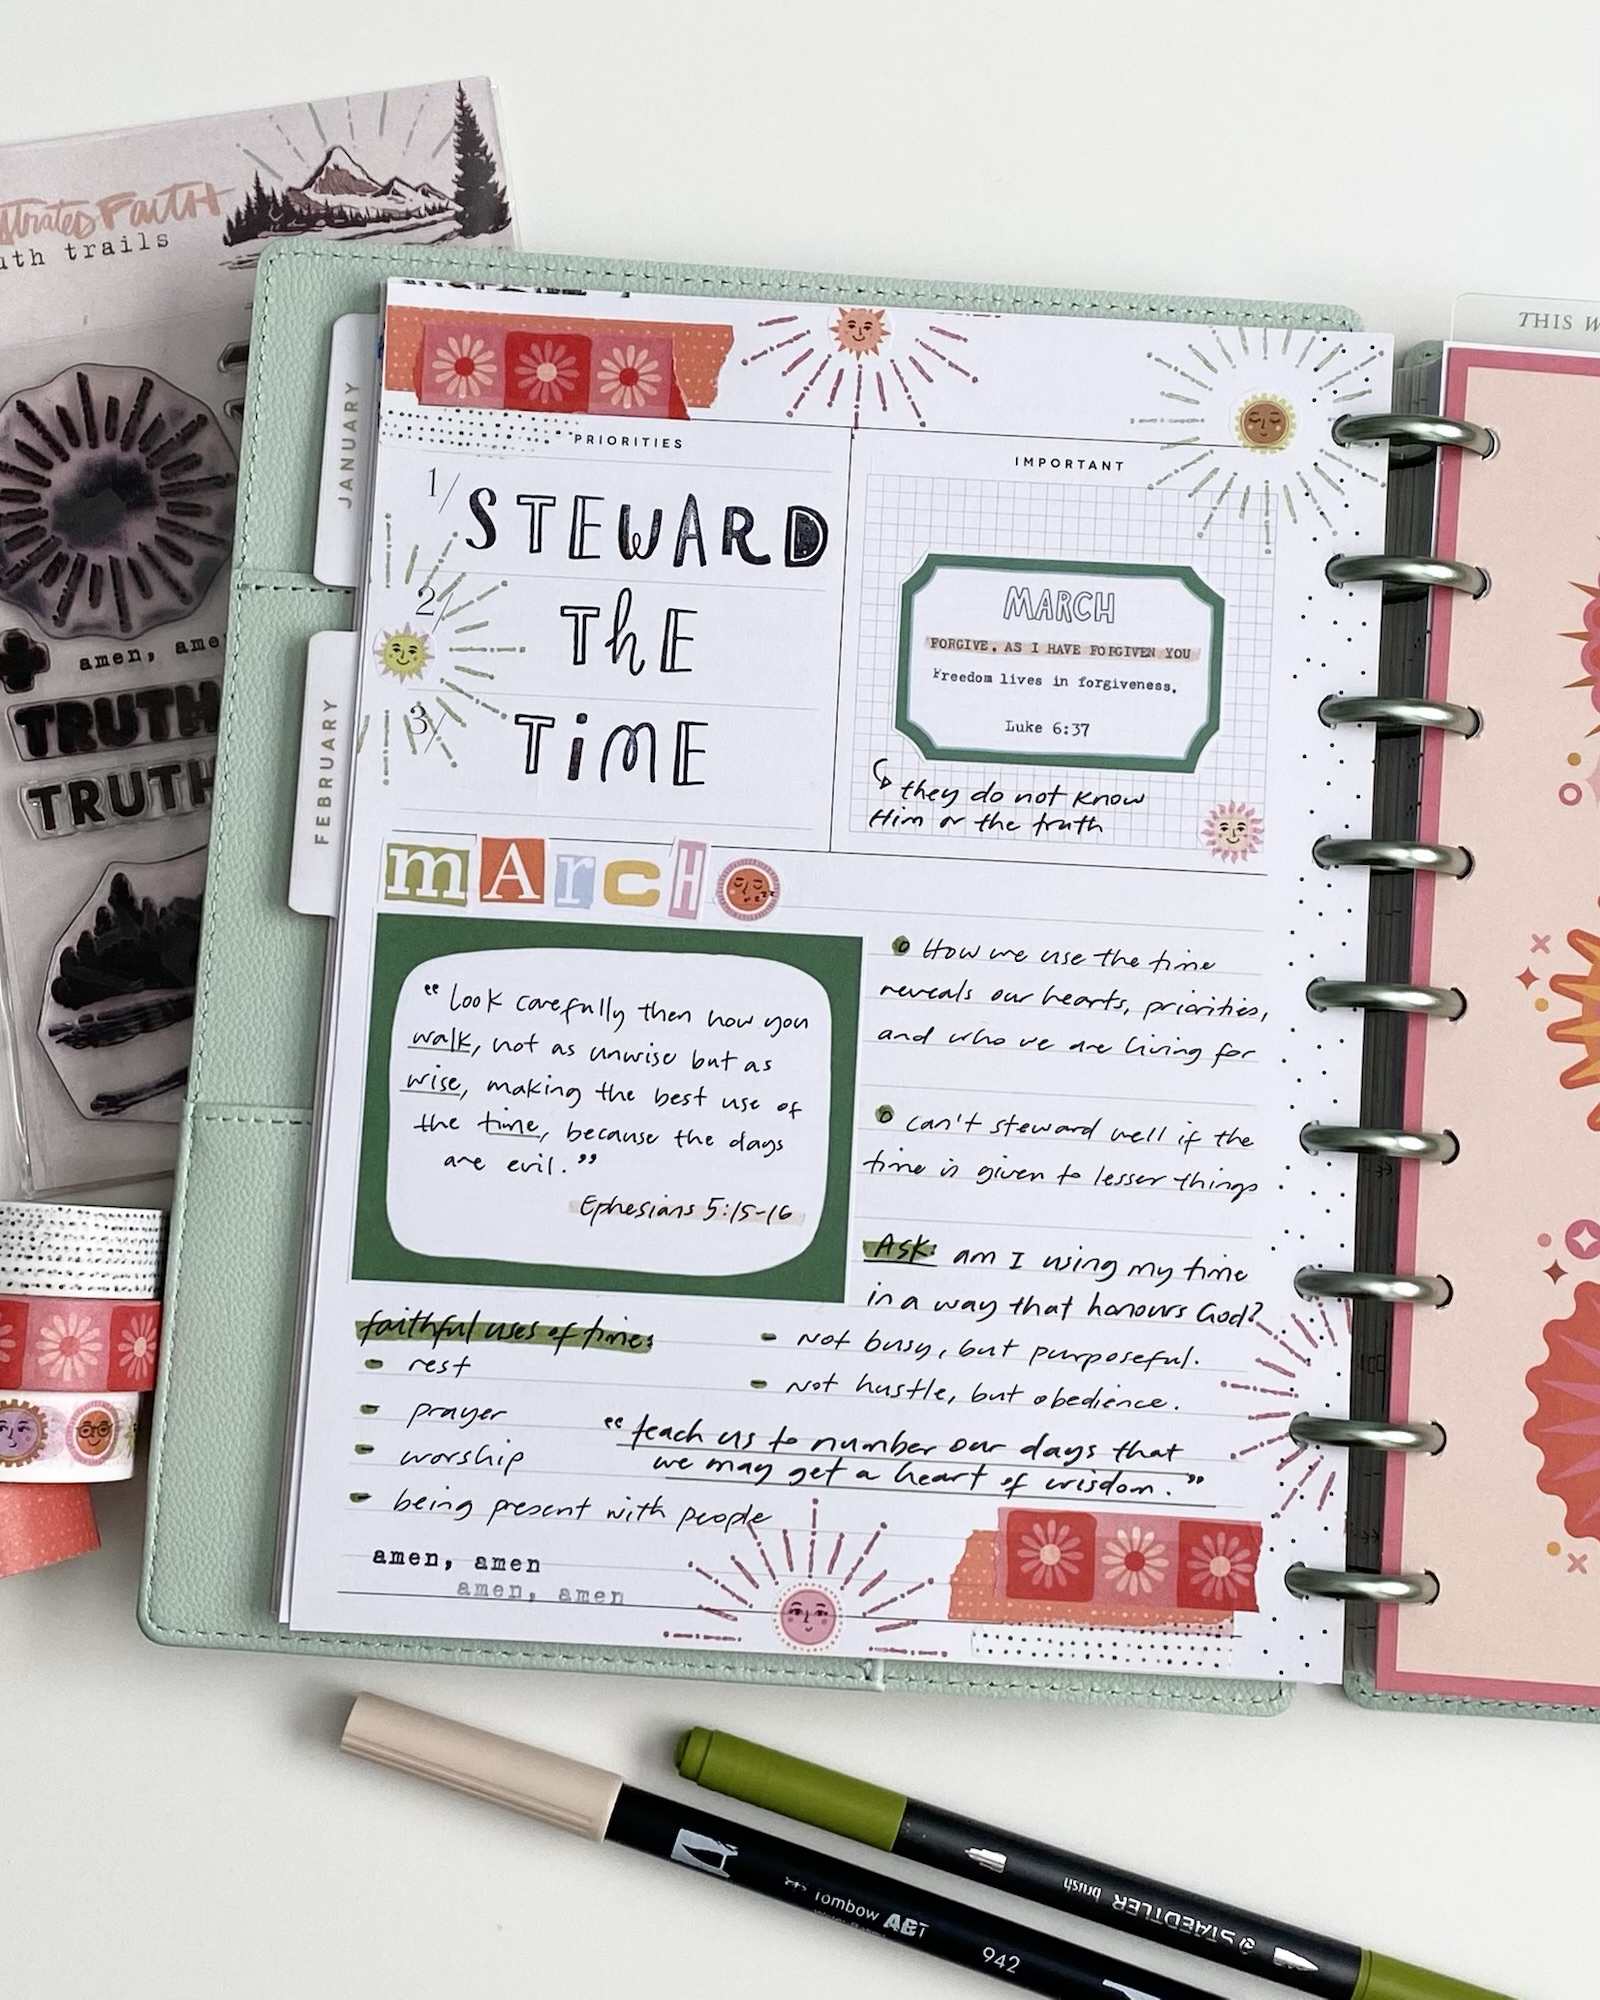 Faith
trails
amen,
TRUTH
TRUTH
JANUARY
FEBRUARY
THIS
PRIORITIES
1/ STEWARD
2/ The
3/ TiME
IMPORTANT
MARCH
FORGIVE, AS I HAVE FORGIVEN YOU
Freedom lives in forgiveness.
Luke 6:37
they do not know
Him or the truth
mArcH
"look carefully then how you
walk, not as unwise but as
wise, making the best use of
the time, because the days
are evil."
Ephesians 5:15-16
How we use the time
reveals our hearts, priorities,
and who we are living for
can't steward well if the
time is given to lesser things
Ask: am I using my time
in a way that honours God?
- Not busy, but purposeful.
- Not hustle, but obedience.
faithful uses of time:
- rest
- prayer
- worship
- being present with people
"teach us to number our days that
we may get a heart of wisdom."
amen, amen
amen, amen
Tombow ABT
942
STAEDTLER
brush